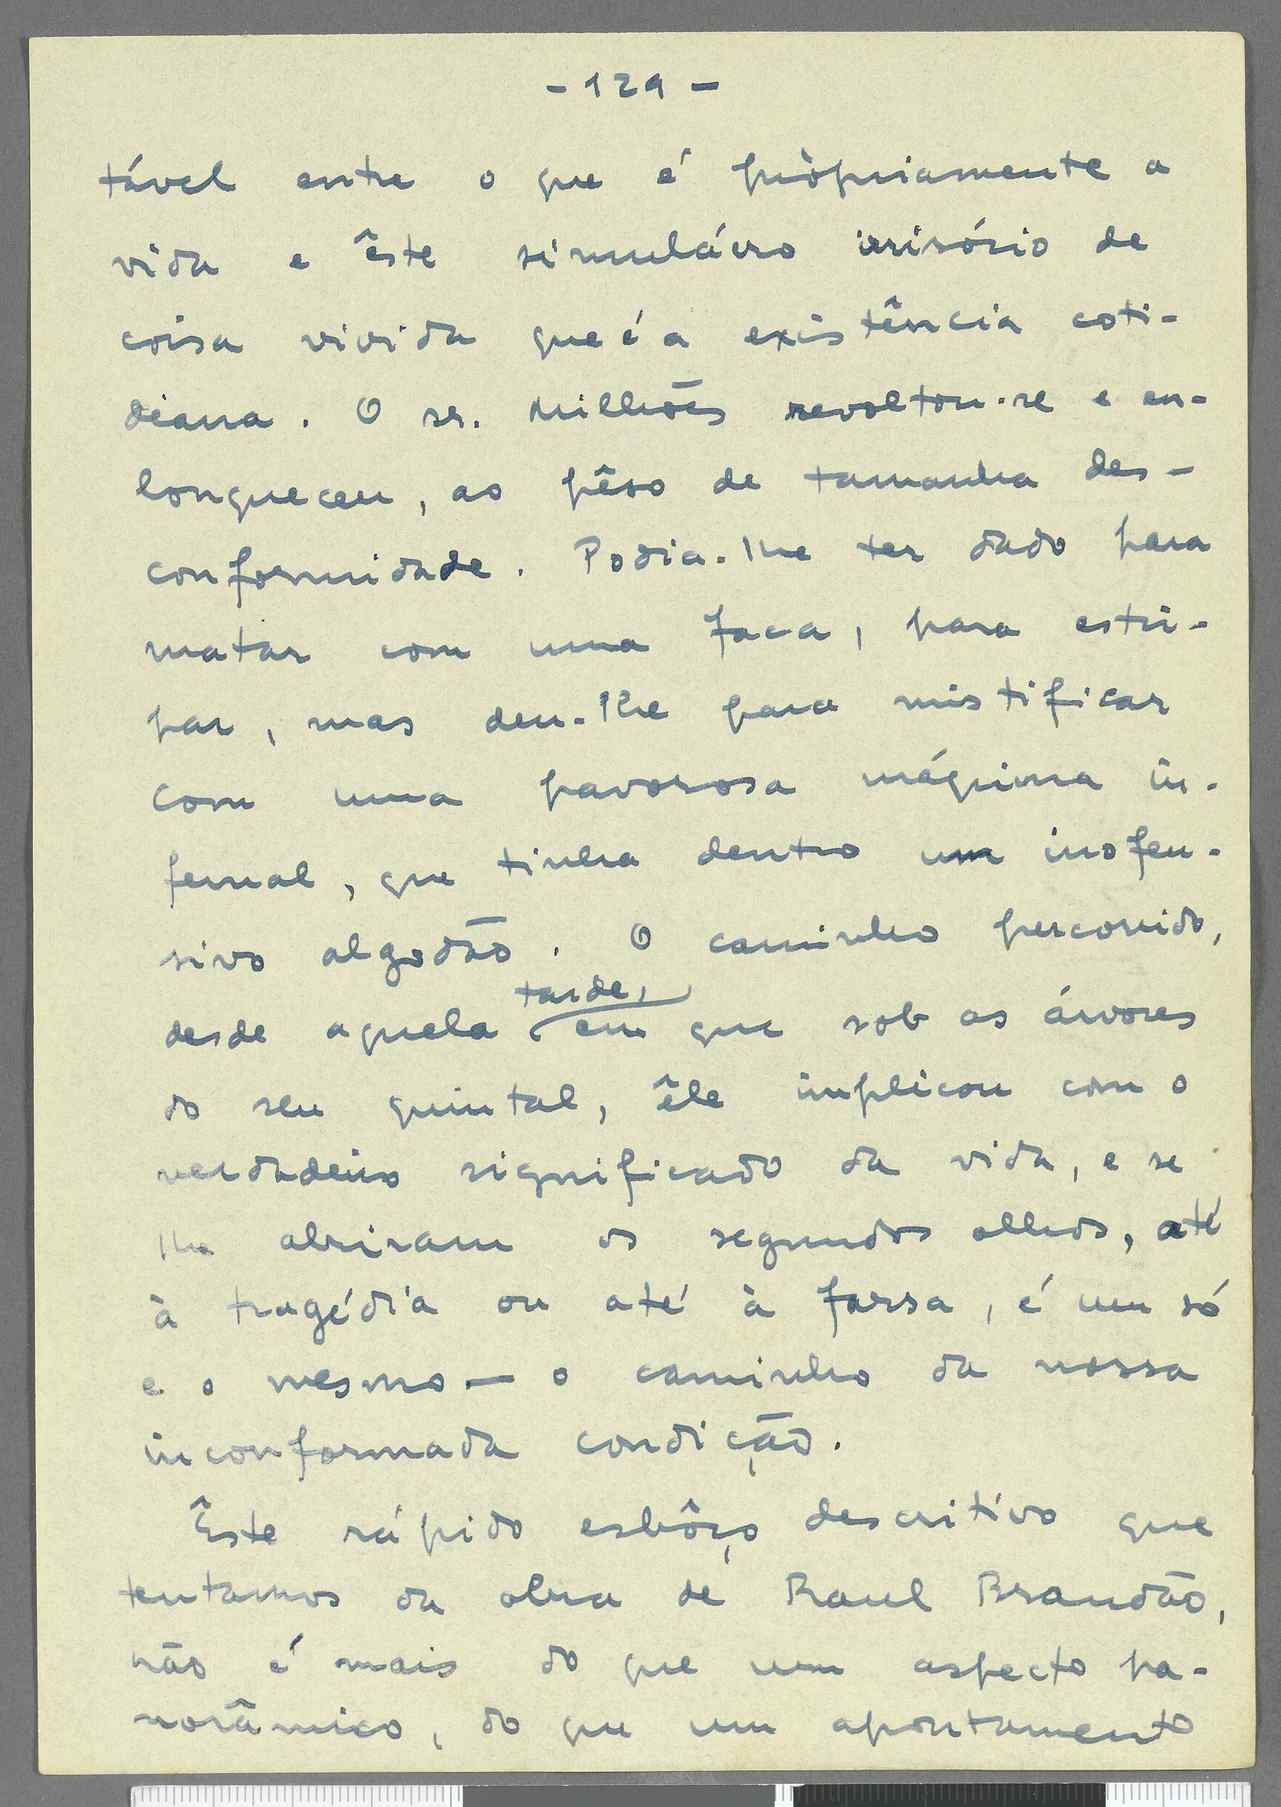 - 129 -
tável entre o que é pròpriamente a
vida e êste simulácro irrisório de
coisa vivida que é a existência coti-
diana. O sr. Milhões revoltou-se e en-
louqueceu, ao pêso de tamanha des-
conformidade. Podia-lhe ter dado para
matar com uma faca, para estri-
par, mas deu-lhe para mistificar
com uma pavorosa máquina in-
fernal, que tinha dentro um inofen-
sivo algodão. O caminho percorrido,
tarde,
desde aquela em que sob as árvores
do seu quintal, êle implicou com o
verdadeiro significado da vida, e se
lhe abriram os segundos olhos, até
à tragédia ou até à farsa, é um só
e o mesmo — o caminho da nossa
inconformada condição.
Êste rápido esbôço descritivo que
tentamos da obra de Raul Brandão,
não é mais do que um aspecto pa-
norâmico, do que um apontamento